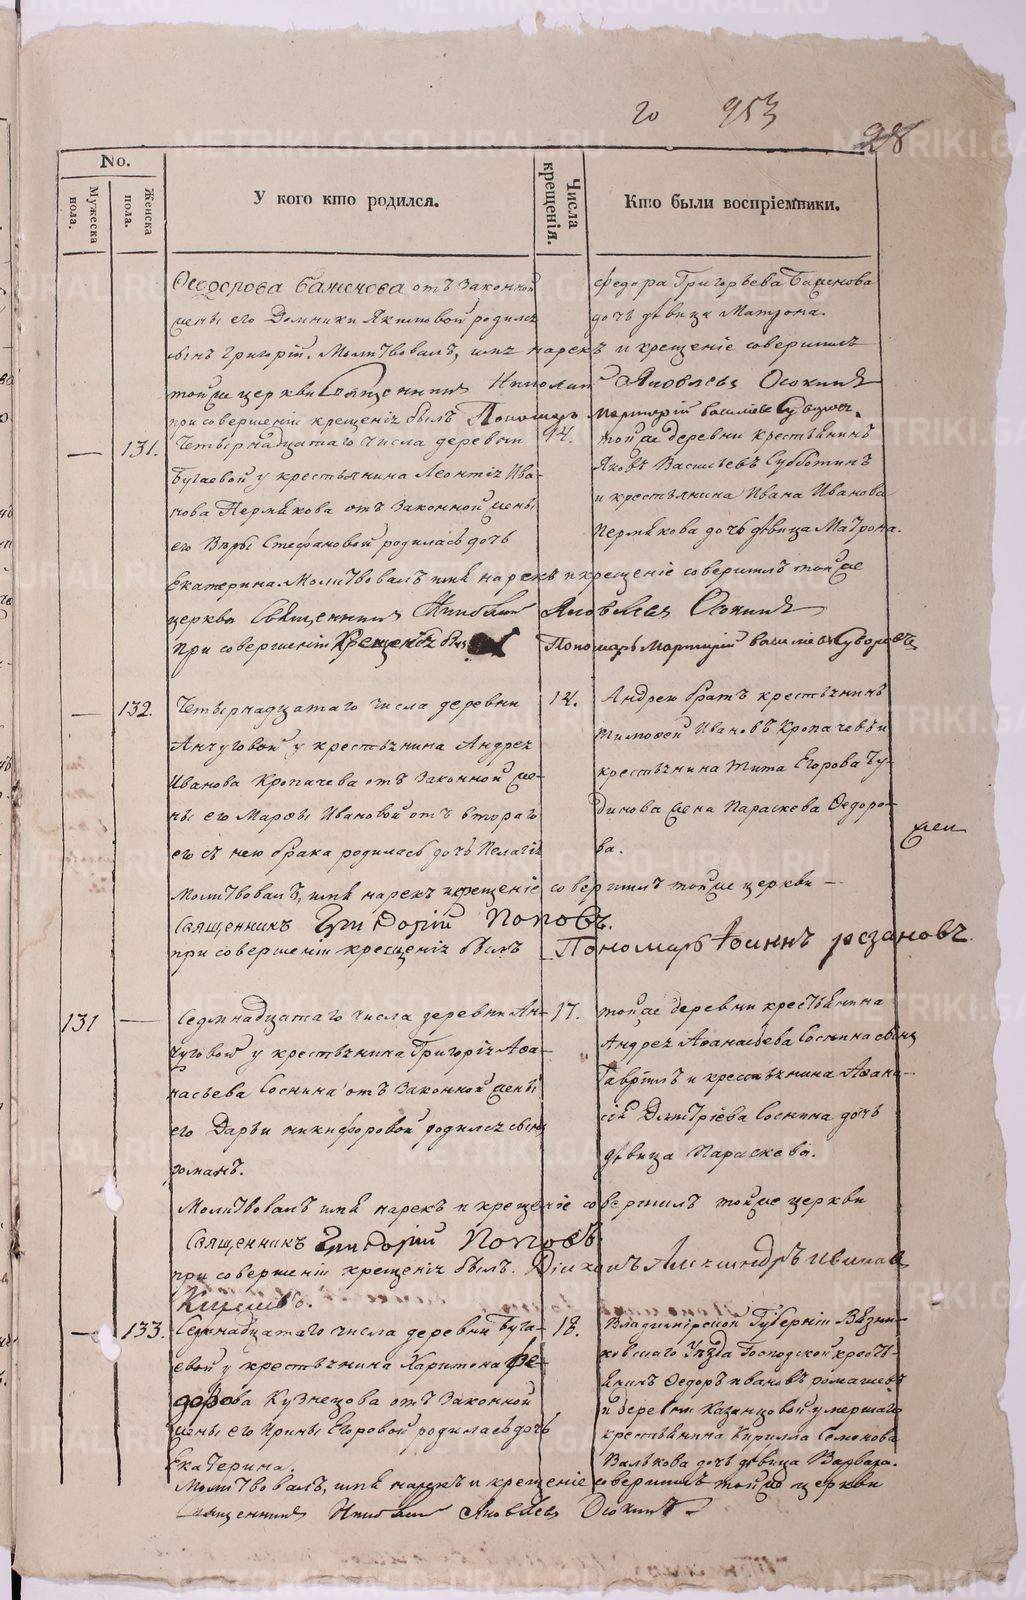 го 953
28
No.
Мужеска пола.
Женска пола.
У кого кто родился.
Числа крещенія.
Кто были воспріемники.
Ѳеодорова Баженова отъ законной
жены его Домники Якимовой родился
сынъ Григорій. Молитвовалъ, имя нарекъ и крещеніе совершилъ
тойже церкви Священникъ Николай Яковлевъ Осокинъ
при совершеніи крещенія былъ Пономарь Мартирій Васильевъ Суворовъ.
Федора Григорьева Баженова
дочь дѣвица Матрона.
— 131. Четырнадцатаго числа деревни
Бугаевой у крестьянина Леонтія Ива-
нова Пермякова отъ законной жены
его Вѣры Стефановой родилась дочь
Екатерина. Молитвовалъ имя нарекъ и крещеніе совершилъ тойже
церкви Священникъ Николай Яковлевъ Осокинъ
при совершеніи крещенія былъ Пономарь Мартирій Васильевъ Суворовъ
14. тойже деревни крестьянинъ
Яковъ Васильевъ Субботинъ
и крестьянина Ивана Иванова
Пермякова дочь дѣвица Матрона.
— 132. Четырнадцатаго числа деревни
Анчуговой у крестьянина Андрея
Иванова Кропачева отъ законной же-
ны его Марѳы Ивановой отъ втораго
его съ нею брака родилась дочь Пелагія
Молитвовалъ, имя нарекъ и крещеніе совершилъ тойже церкви —
Священникъ Григорій Поповъ.
при совершеніи крещенія былъ Пономарь Іоаннъ рѣзановъ
14. Андрею братъ крестьянинъ
Тимоѳей Ивановъ Кропачевъ и
крестьянина Тита Егорова Чу-
динова жена Параскева Ѳедоро-
ва.
131 — Седмнадцатаго числа деревни Ан-
чуговой у крестьянина Григорія Аѳа-
насьева Соснина отъ законной жены
его Дарьи никифоровой родился сынъ
романъ.
Молитвовалъ имя нарекъ и крещеніе совершилъ тойже церкви
Священникъ Григорій Поповъ
при совершеніи крещенія былъ. Діаконъ Александръ Ивановъ
17. тойже деревни крестьянина
Андрея Аѳанасьева Соснина сынъ
Гавріилъ и крестьянина Аѳана-
сія Димитріева Соснина дочь
дѣвица Параскева.
— 133. Седмнадцатаго числа деревни Буга-
евой у крестьянина Харитона Фе-
дорова Кузнецова отъ законной
жены его Ирины Егоровой родилась дочь
Екатерина.
Молитвовалъ, имя нарекъ и крещеніе совершилъ тойже церкви
Священникъ Николай Яковлевъ Осокинъ
18. Владимірской Губерніи Вязни-
ковскаго Уѣзда Господской кресть-
янинъ Ѳедоръ ивановъ ромашевъ
и деревни Казанцовой умершаго
крестьянина Кирилла Семенова
Валькова дочь дѣвица Варвара.
METRIKI.GASO-URAL.RU